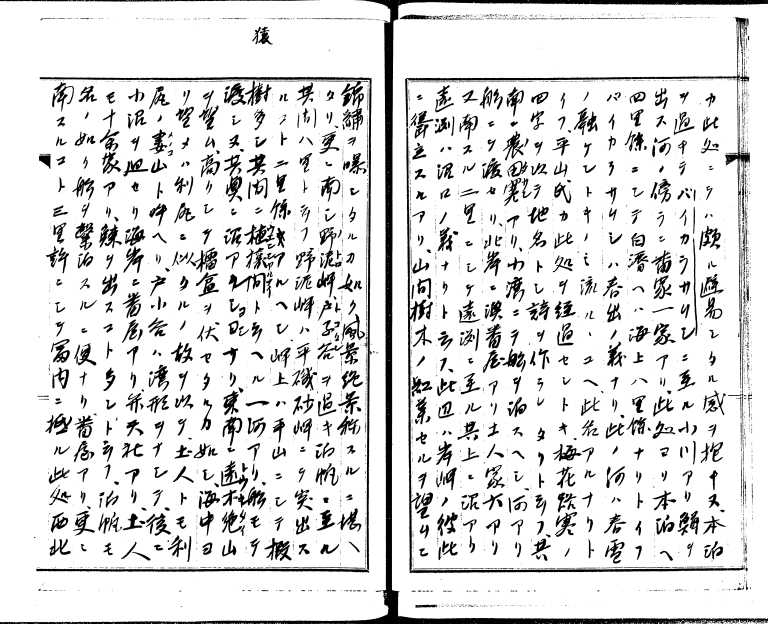 カ此処ニテハ頗ル避易シタル感ヲ抱キヌ、本泊
ヲ過キテバイカラカリシニ至ル小川アリ鱒ヲ
出ス河ノ傍ラニ番家一家アリ、此処ヨリ本泊ヘ
四里餘ニシテ白濱ヘハ海上八里餘ナリトイフ
バイカラサリシハ春出ノ義ナリ、此ノ河ハ春雪
ノ融ケントキノミ流ルヽユヘ、此名アルナリト
イフ、平山氏カ此処ヲ経過セントキ、梅花路寒ノ
四字ヲ以テ地名トシ詩ヲ作ラレタリト云フ、其
南ニ農田寒アリ、小湾ニテ船ヲ泊スヘシ、河アリ
船ニテ渡セリ、北岸ニ漁番屋アリ土人家六アリ
又南スル二里ニシテ遠渕ニ至ル、其上ニ沼アリ
遠渕ハ沼口ノ義ナリト云ヌ、此辺ハ岸岬ノ彼此
ニ斗立スルアリ、山間樹木ノ紅葉セルヲ望ムニ
猿
錦繍ヲ曝シタルカ如ク風景絶景称スルニ堪ヘ
タリ更ニ南シ野泥岬戸ヲ過キ泊帆ニ至ル
共ニ八里トテフ野泥岬ハ平磯砂岬ニテ突出ス
ルコト二里餘モアルヘシ、岬上ハ平山ニシテ椴
樹多シ、其間ニ極様内ト云ヘル一河アリ、船モテ
渡シヌ、其奥ニ沼アタシヨロナリ、東南ニ遠木絶山
ヲ望ム、高リシテ櫑盒ヲ伏セタルカ如シ、海中ヨ
リ望メハ利尻ニ似タルノ故ヲ以テ、土人トモ利
尻ノ妻山ト呼ヘリ、戸小谷ハ湾形ヲナシテ、後ニ
小沼ヲ廻セリ海岸ニ番屋アリ弁天社アリ、土人
モ十余家アリ、鯡ヲ出スコトタシト云フ、泊帆モ
名ノ如リ船ヲ繋泊スルニ便ナリ番屋アリ、更ニ
南スルコト三里許ニシテ富内ニ極ル此処西北